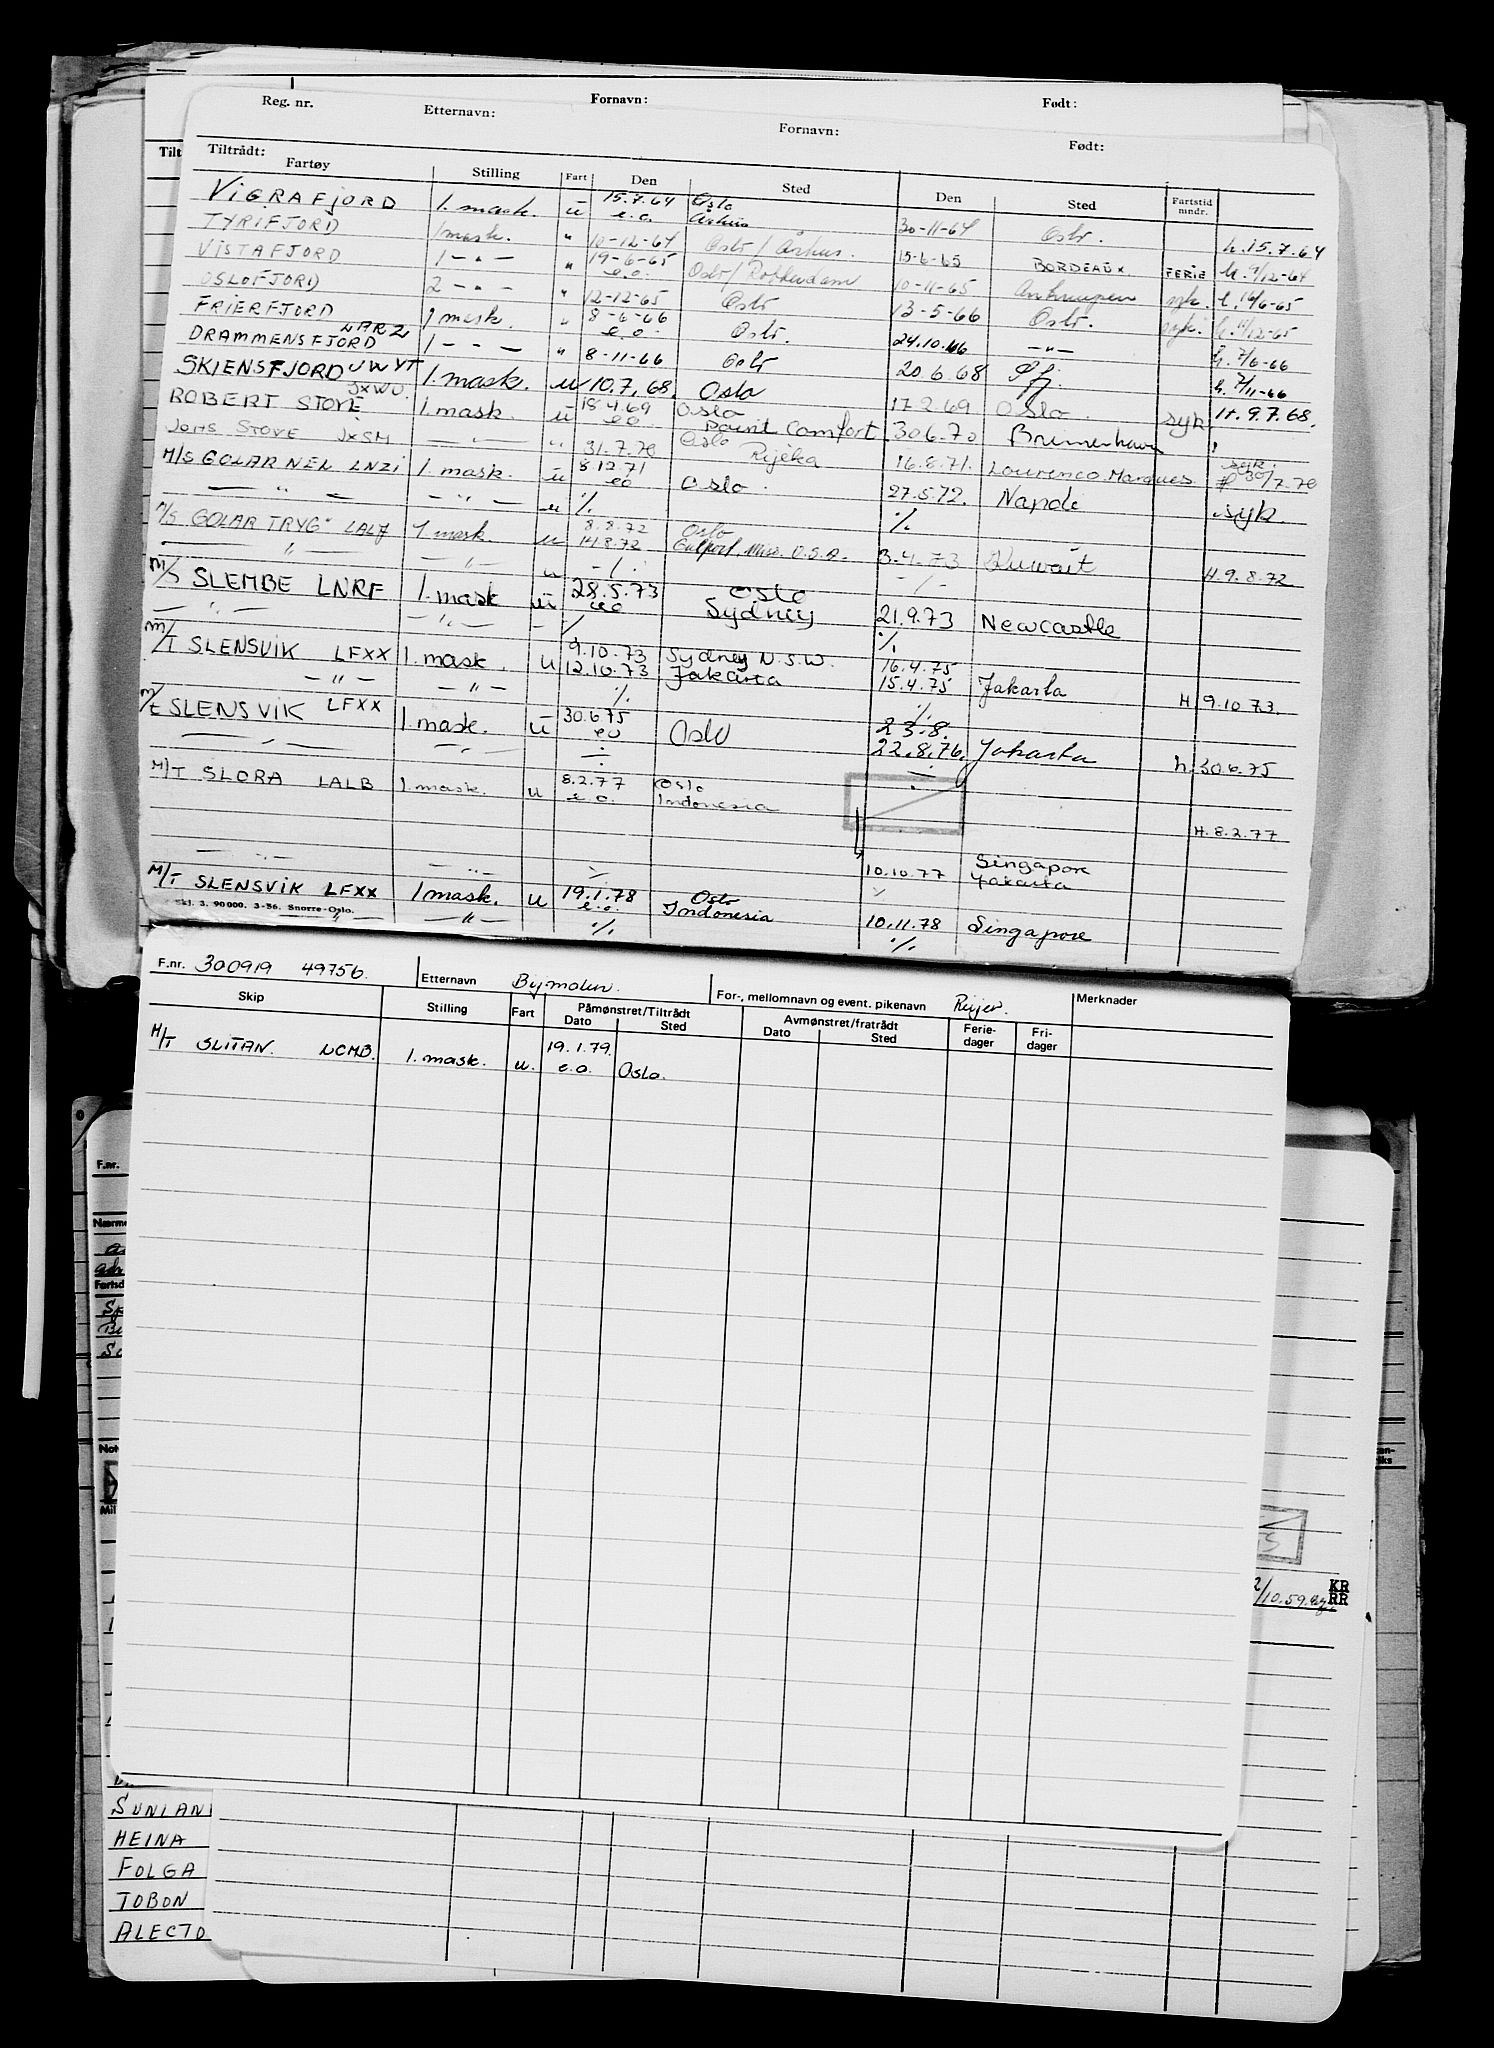 Reg. nr. Fornavn: Født:
Etternavn: Fornavn: Født:
Tiltrådt:
Fartøy Stilling Fart Den Sted Den Sted Fartstid mndr.
VIGRAFJORD 1. mask. u 15.7.64 e.o. Oslo Århus 30-11-64 Oslo. h. 15.7.64
TYRIFJORD 1 mask. " 10-12-64 Oslo / Århus. 15-6-65 BORDEAUX FERIE h. 9/12-64
VISTAFJORD 1 - " - " 19-6-65 e.o. Oslo / Rotterdam 10-11-65 Antwerpen syk. h. 16/6-65
OSLOFJORD 2 - " - " 12-12-65 Oslo 13-5-66 Oslo. syk. h. 11/12-65
FRIERFJORD 1 mask. " 8-6-66 e.o. Oslo. 24.10.66 - " - h. 7/6-66
DRAMMENSFJORD LARZ 1 - - - " 8-11-66 Oslo 20.6.68 h. 7/11-66
SKIENSFJORD JWYT 1. mask. u 10.7.68. Oslo 17.2.69 Oslo. syk H. 9.7.68.
ROBERT STOVE JXWU 1. mask. u 18.4.69 eo Oslo Point Comfort 30.6.70 Bremerhaven
JOHS STOVE JXSM - " - " 31.7.70 Oslo Rijeka 16.8.71. Lourenco Marques syk. 30/7.70
M/S GOLAR NEL LNZI 1. mask. u 8.12.71 eo Oslo. 27.5.72. Napoli syk.
- " - - " - u ./. ./.
M/S GOLAR TRYG" LALJ 1 mask. u 8.8.72 14.8.72 Oslo Gulport, Miss. U.S.A. 3.4.73 Kuwait H. 9.8.72
" - " - u -/. -/-
M/S SLEMBE LNRF 1. mask u 28.5.73 eo Oslo Sydney 21.9.73 Newcastle
- " - - " - - ./. ./.
M/T SLENSVIK LFXX 1. mask. u 9.10.73 12.10.73 Sydney N.S.W. Jakarta 16.4.75 15.4.75 Jakarta H 9.10.73.
- " - - " - ./. ./.
M/T SLENSVIK LFXX 1. mask. u 30.6.75 eo Oslo 23.8. 22.8.76. Jakarta h. 30.6.75
- " - - " -
M/T SLORA LALB 1. mask. u 8.2.77 e.o. Oslo Indonesia H. 8.2.77
- " - - " - 10.10.77 Singapore Jakarta
M/T SLENSVIK LFXX 1 mask. u 19.1.78 e.o. Oslo Indonesia 10.11.78 Singapore
Skl. 3. 90000. 3-56. Snorre-Oslo. - " - - " - ./. ./.
F.nr. 300919 49756. Etternavn Bijmolen. For-, mellomnavn og event. pikenavn Reijer. Merknader
Skip Stilling Fart Påmønstret/Tiltrådt Dato Sted Avmønstret/fratrådt Dato Sted Ferie-dager Fri-dager
M/T SLITAN. LCMB. 1. mask. u. 19.1.79. e.o. Oslo.
F.nr.
Nærme
Fartsd
Not
Mil
2/10.59
KR
RR
SUNLAN
HEINA
FOLGA
TOBON
ALECTO